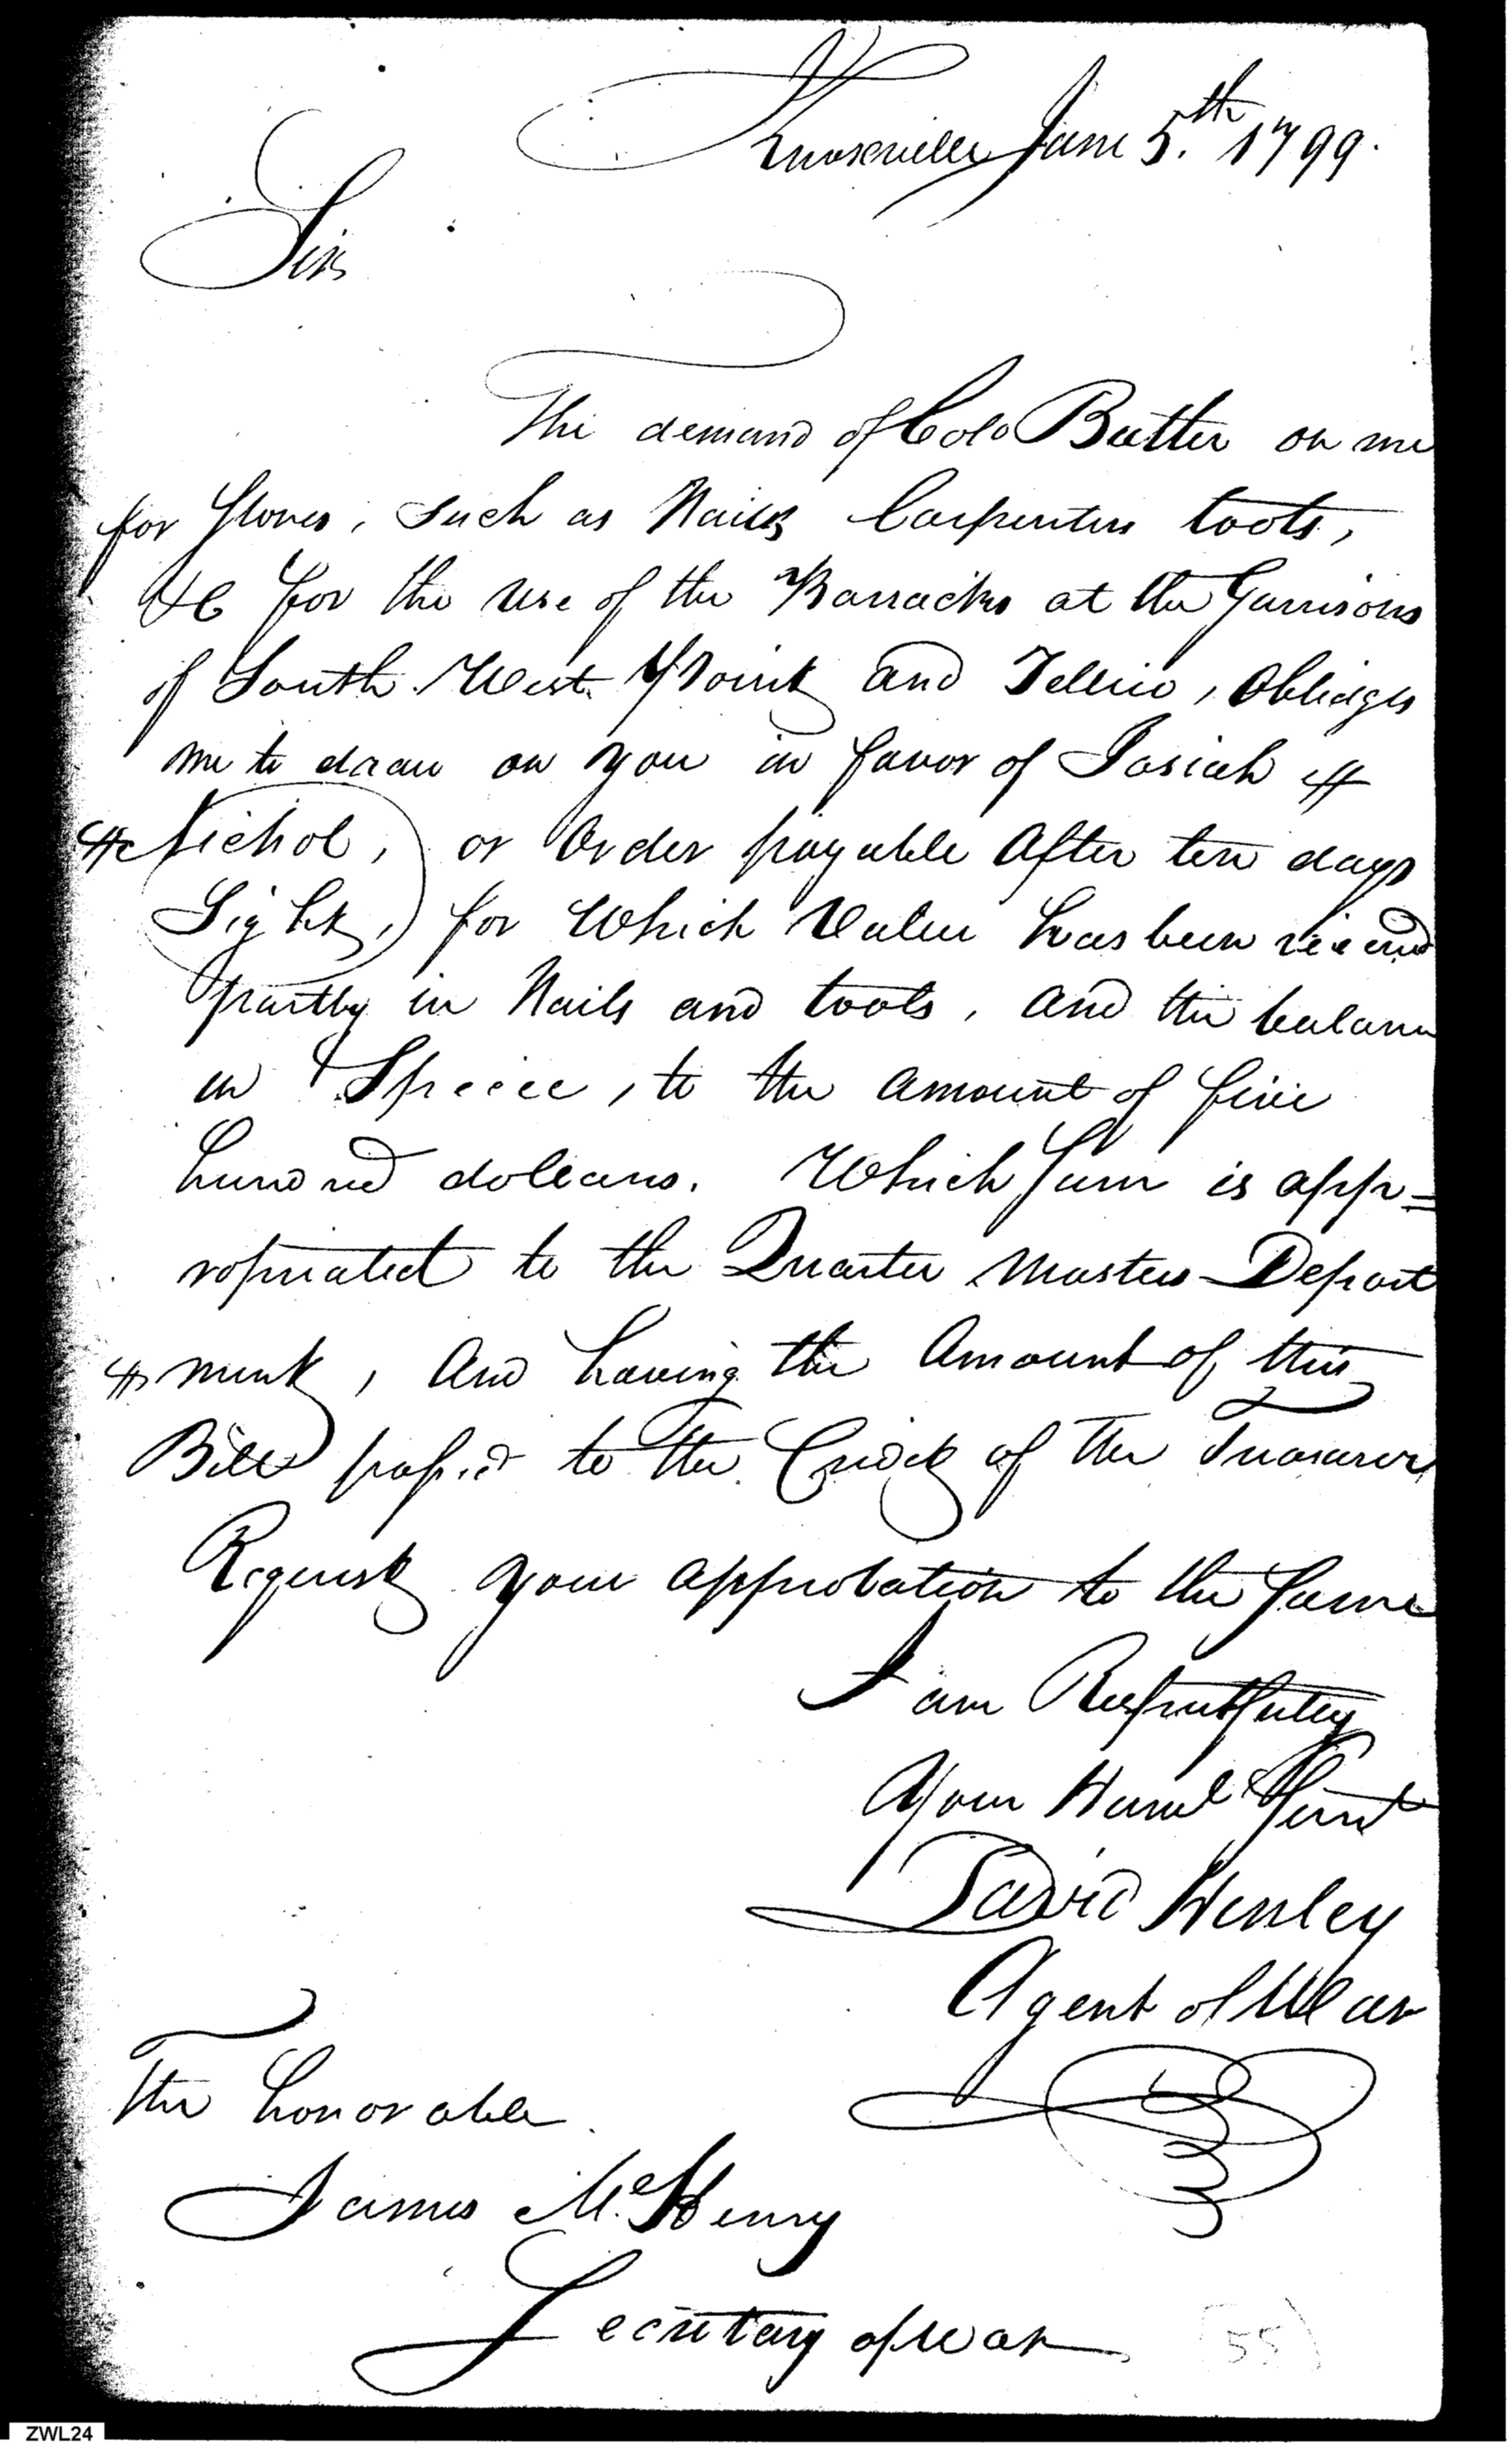 Knoxville June 5.th 1799.
Sir
The demand of Colo Butler on me
for Stores, Such as Nails Carpenters tools,
&C for the use of the Barracks at the Garrisons
of South West Point and Tellico, Obliges
me to draw on you in favor of Josiah
Nichol, or Order payable After ten days
Sight, for Which Value has been received
partly in Nails and tools, and the balance
in Specie, to the amount of five
hundred dollars. Which Sum is app=
ropriated to the Quarter Masters Depart
ment, And having the Amount of this
Bill passed to the Credit of the Treasurer
Request your approbation to the Same
I am Respectfully
Your Humbl Servt
David Henley
Agent of War
The honorable
James Mc.Henry
Secretary of War
55
ZWL24